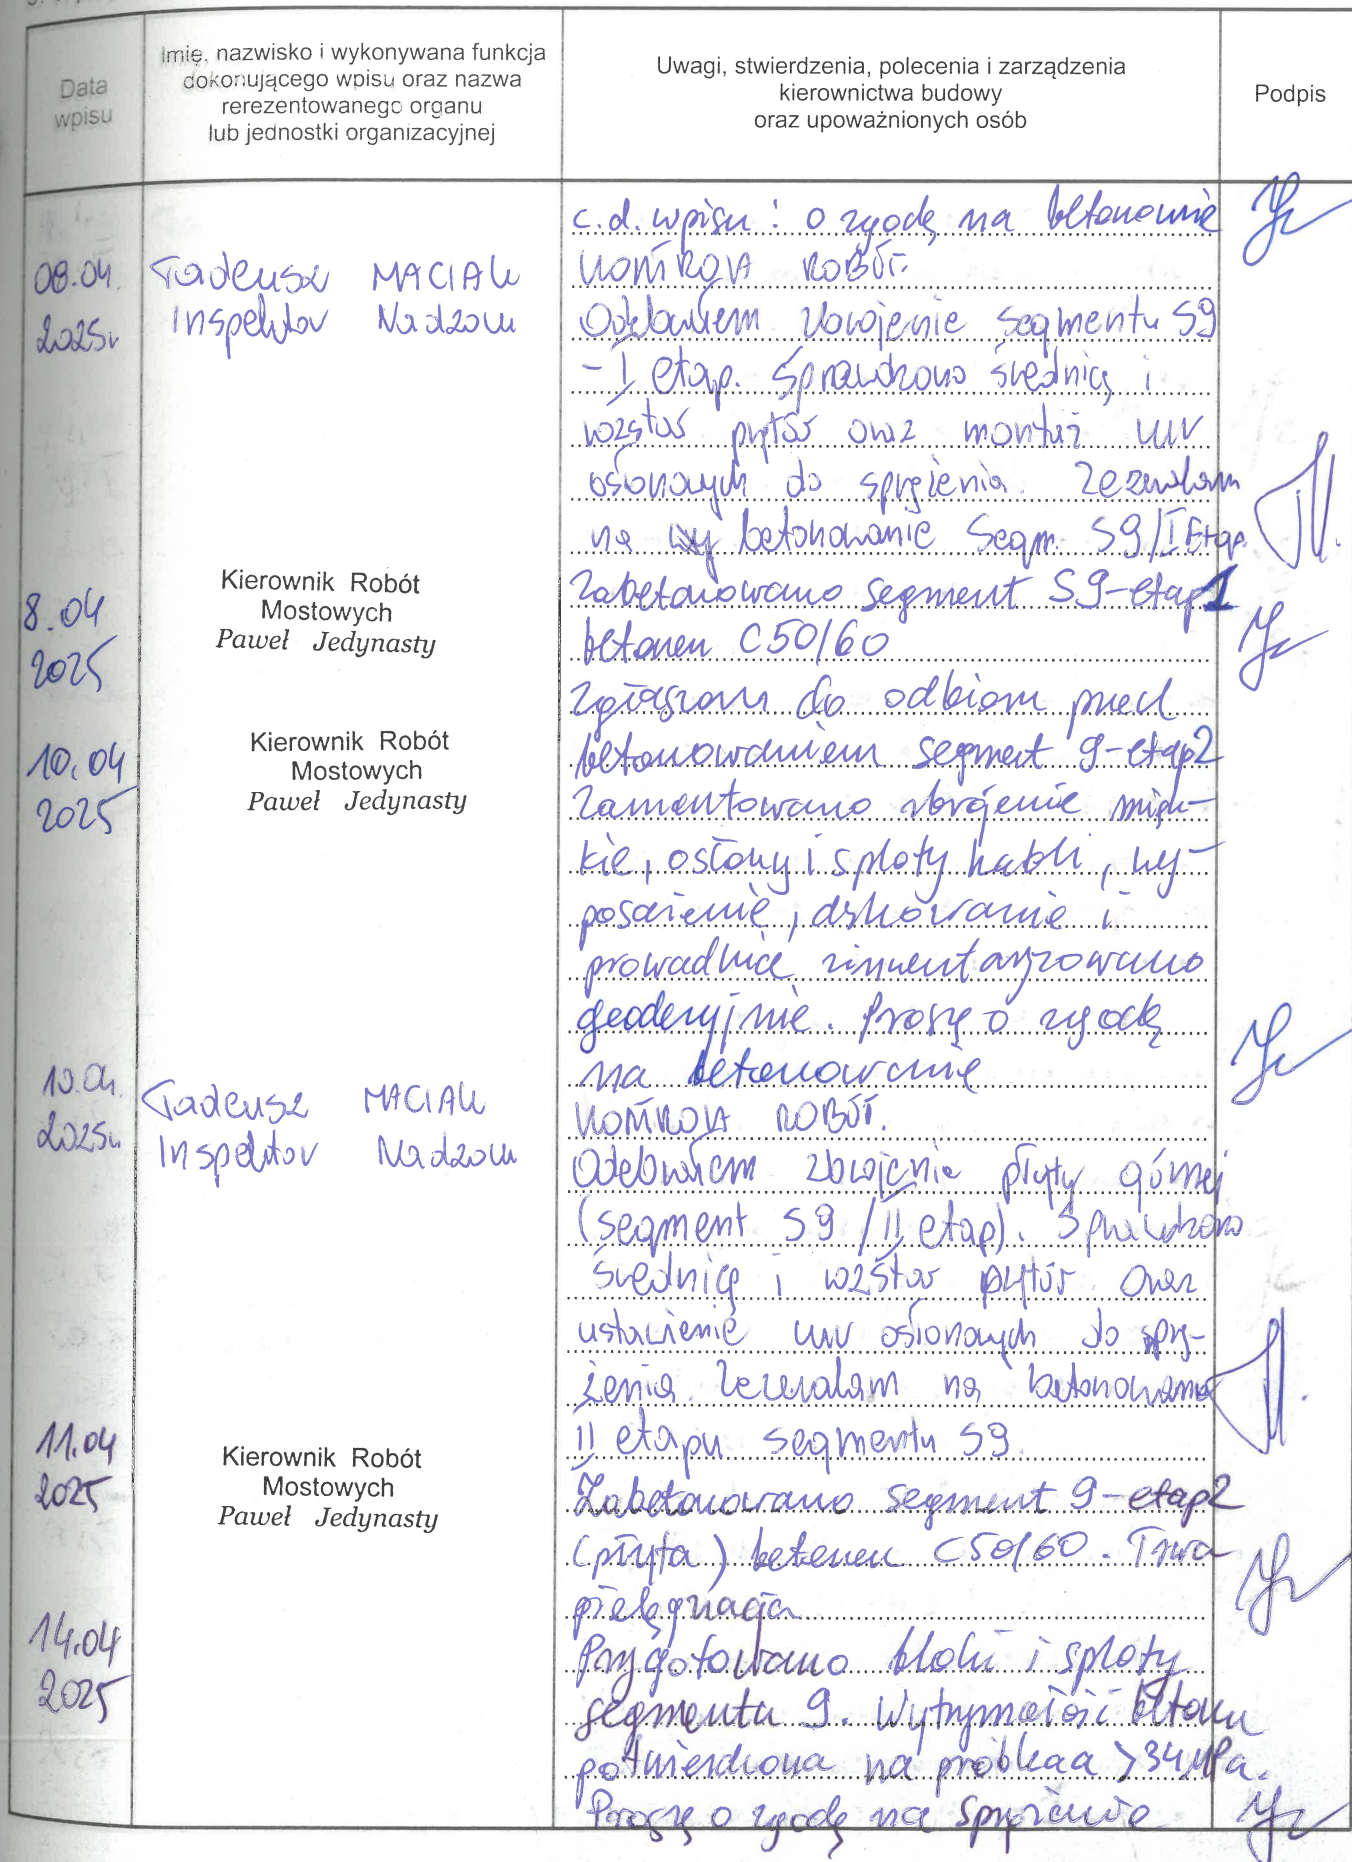 Data
wpisu
Imię, nazwisko i wykonywana funkcja
dokonującego wpisu oraz nazwa
rerezentowanego organu
lub jednostki organizacyjnej
Uwagi, stwierdzenia, polecenia i zarządzenia
kierownictwa budowy
oraz upoważnionych osób
Podpis
c.d. wpisu : o zgodę na betonowanie
08.04.
2025r
Tadeusz MACIAK
Inspektor Nadzoru
KONTROLA ROBÓT.
Odebrałem zbrojenie segmentu S9
- I etap. Sprawdzono średnicę i
rozstaw prętów oraz montaż rur
osłonowych do sprężenia. Zezwalam
na betonowanie Segm. S9/I Etap.
8.04
2025
Kierownik Robót
Mostowych
Paweł Jedynasty
Zabetonowano segment S9-etap 1
betonem C50/60
10.04
2025
Kierownik Robót
Mostowych
Paweł Jedynasty
Zgłaszam do odbioru przed
betonowaniem segment 9-etap2
Zamontowano zbrojenie mięk-
kie, osłony i sploty kabli, wy-
posażenie, deskowanie i
prowadnice zinwentaryzowano
geodezyjnie. Proszę o zgodę
na betonowanie
10.04.
2025r.
Tadeusz MACIAK
Inspektor Nadzoru
KONTROLA ROBÓT.
Odebrałem zbrojenie płyty górnej
(segment S9 /II etap). Sprawdzono
średnicę i rozstaw prętów oraz
ustawienie rur osłonowych do sprę-
żenia. Zezwalam na betonowanie
II etapu segmentu S9.
11.04
2025
Kierownik Robót
Mostowych
Paweł Jedynasty
Zabetonowano segment 9-etap2
(płyta) betonem C50/60. Trwa
pielęgnacja
14.04
2025
Przygotowano bloki i sploty
segmentu 9. Wytrzymałość betonu
potwierdzona na próbkaa >34MPa.
Proszę o zgodę na sprężenie